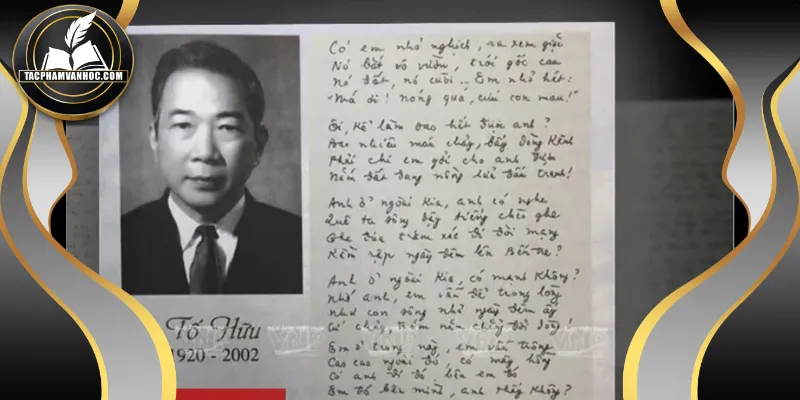 TACPHAMVANHOC.COM
Có em nhỏ nghịch, ra xem giặc
Nó bắt vô vườn, trói gốc cau
Nó đốt, nó cười... Em nhỏ hét:
"Má ơi! Nóng quá, cứu con mau!"
Ôi, kể làm sao hết được anh?
Bao nhiêu máu chảy, đầy dòng kênh
Phải chi em gởi cho anh
Nắm đất đang nồng lửa đấu tranh!
Anh ở ngoài kia, anh có nghe
Quê ta sông dậy tiếng chèo ghe
Ghe đưa trăm xác đi đòi mạng
Rầm rập ngày đêm lên Bến Tre?
Anh ở ngoài kia, có mạnh không?
Nhớ anh, em vẫn để trong lòng
Như con sông nhỏ ngày đêm ấy
Cứ chảy, trăm năm chẳng đổi dòng!
Em ở trong này, em vẫn trông
Cao cao ngoài đó, có mây hồng
Có anh đi đó, bên em đó
Em đó bên mình, anh thấy không?
Tố Hữu
1920 - 2002